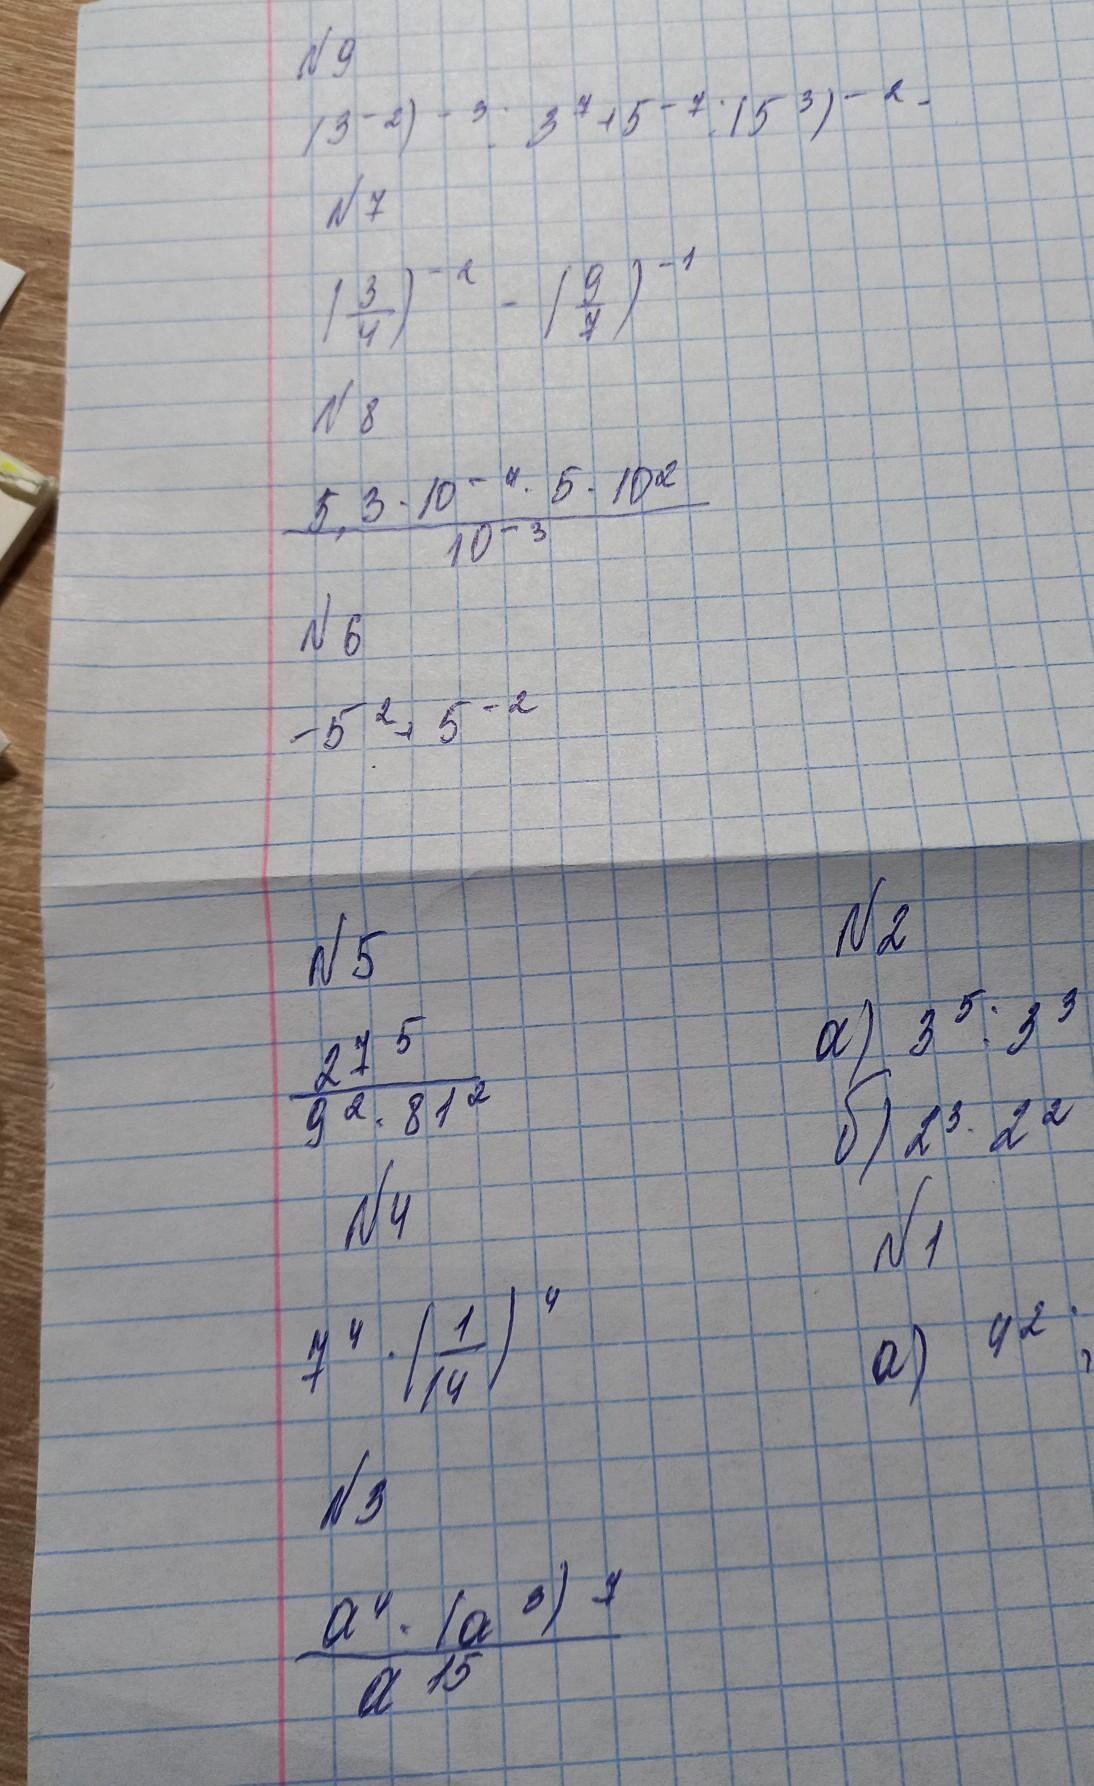 N9
(3⁻²)⁻³ : 3⁷ + 5⁻⁷ : (5³)⁻² -
N7
(3/4)⁻² - (9/7)⁻¹
N8
5,3 · 10⁻⁴ · 5 · 10²
10⁻³
N6
-5² + 5⁻²
N5
27⁵
9² · 81²
N4
7⁴ · (1/14)⁴
N3
a⁴ · (a³)⁷
a¹⁵
N2
а) 3⁵ : 3³
б) 2³ · 2²
N1
а) 4² ;